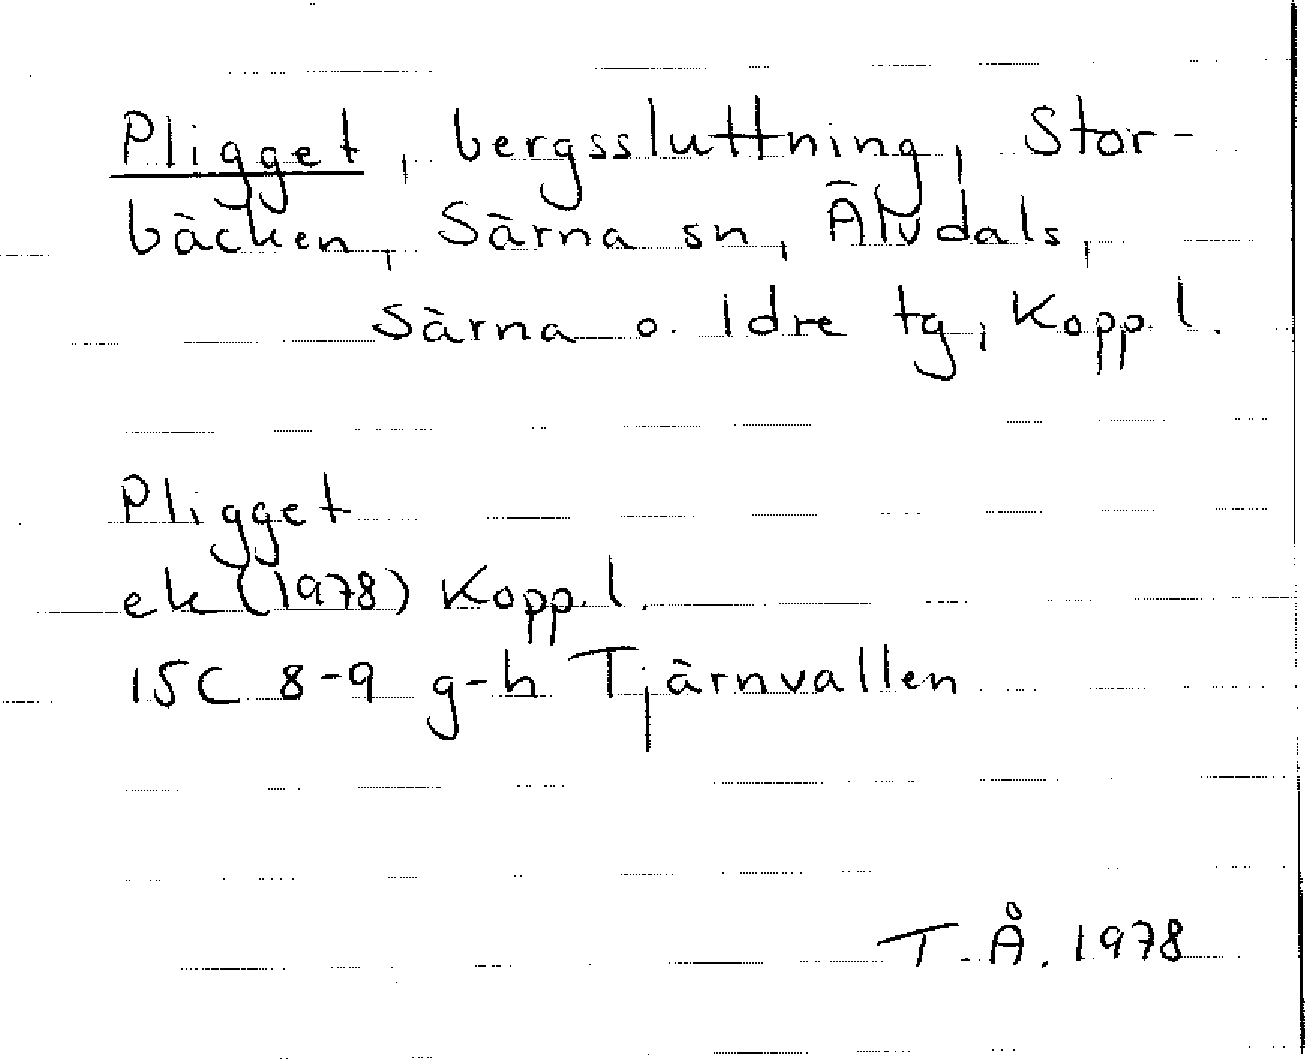 Pligget, bergssluttning, Stor-
bäcken, Särna sn, Älvdals,
Särna o. Idre tg, Kopp. l.
Pligget
ek (1978) Kopp. l.
15C 8-9 g-h Tjärnvallen
T. Å. 1978